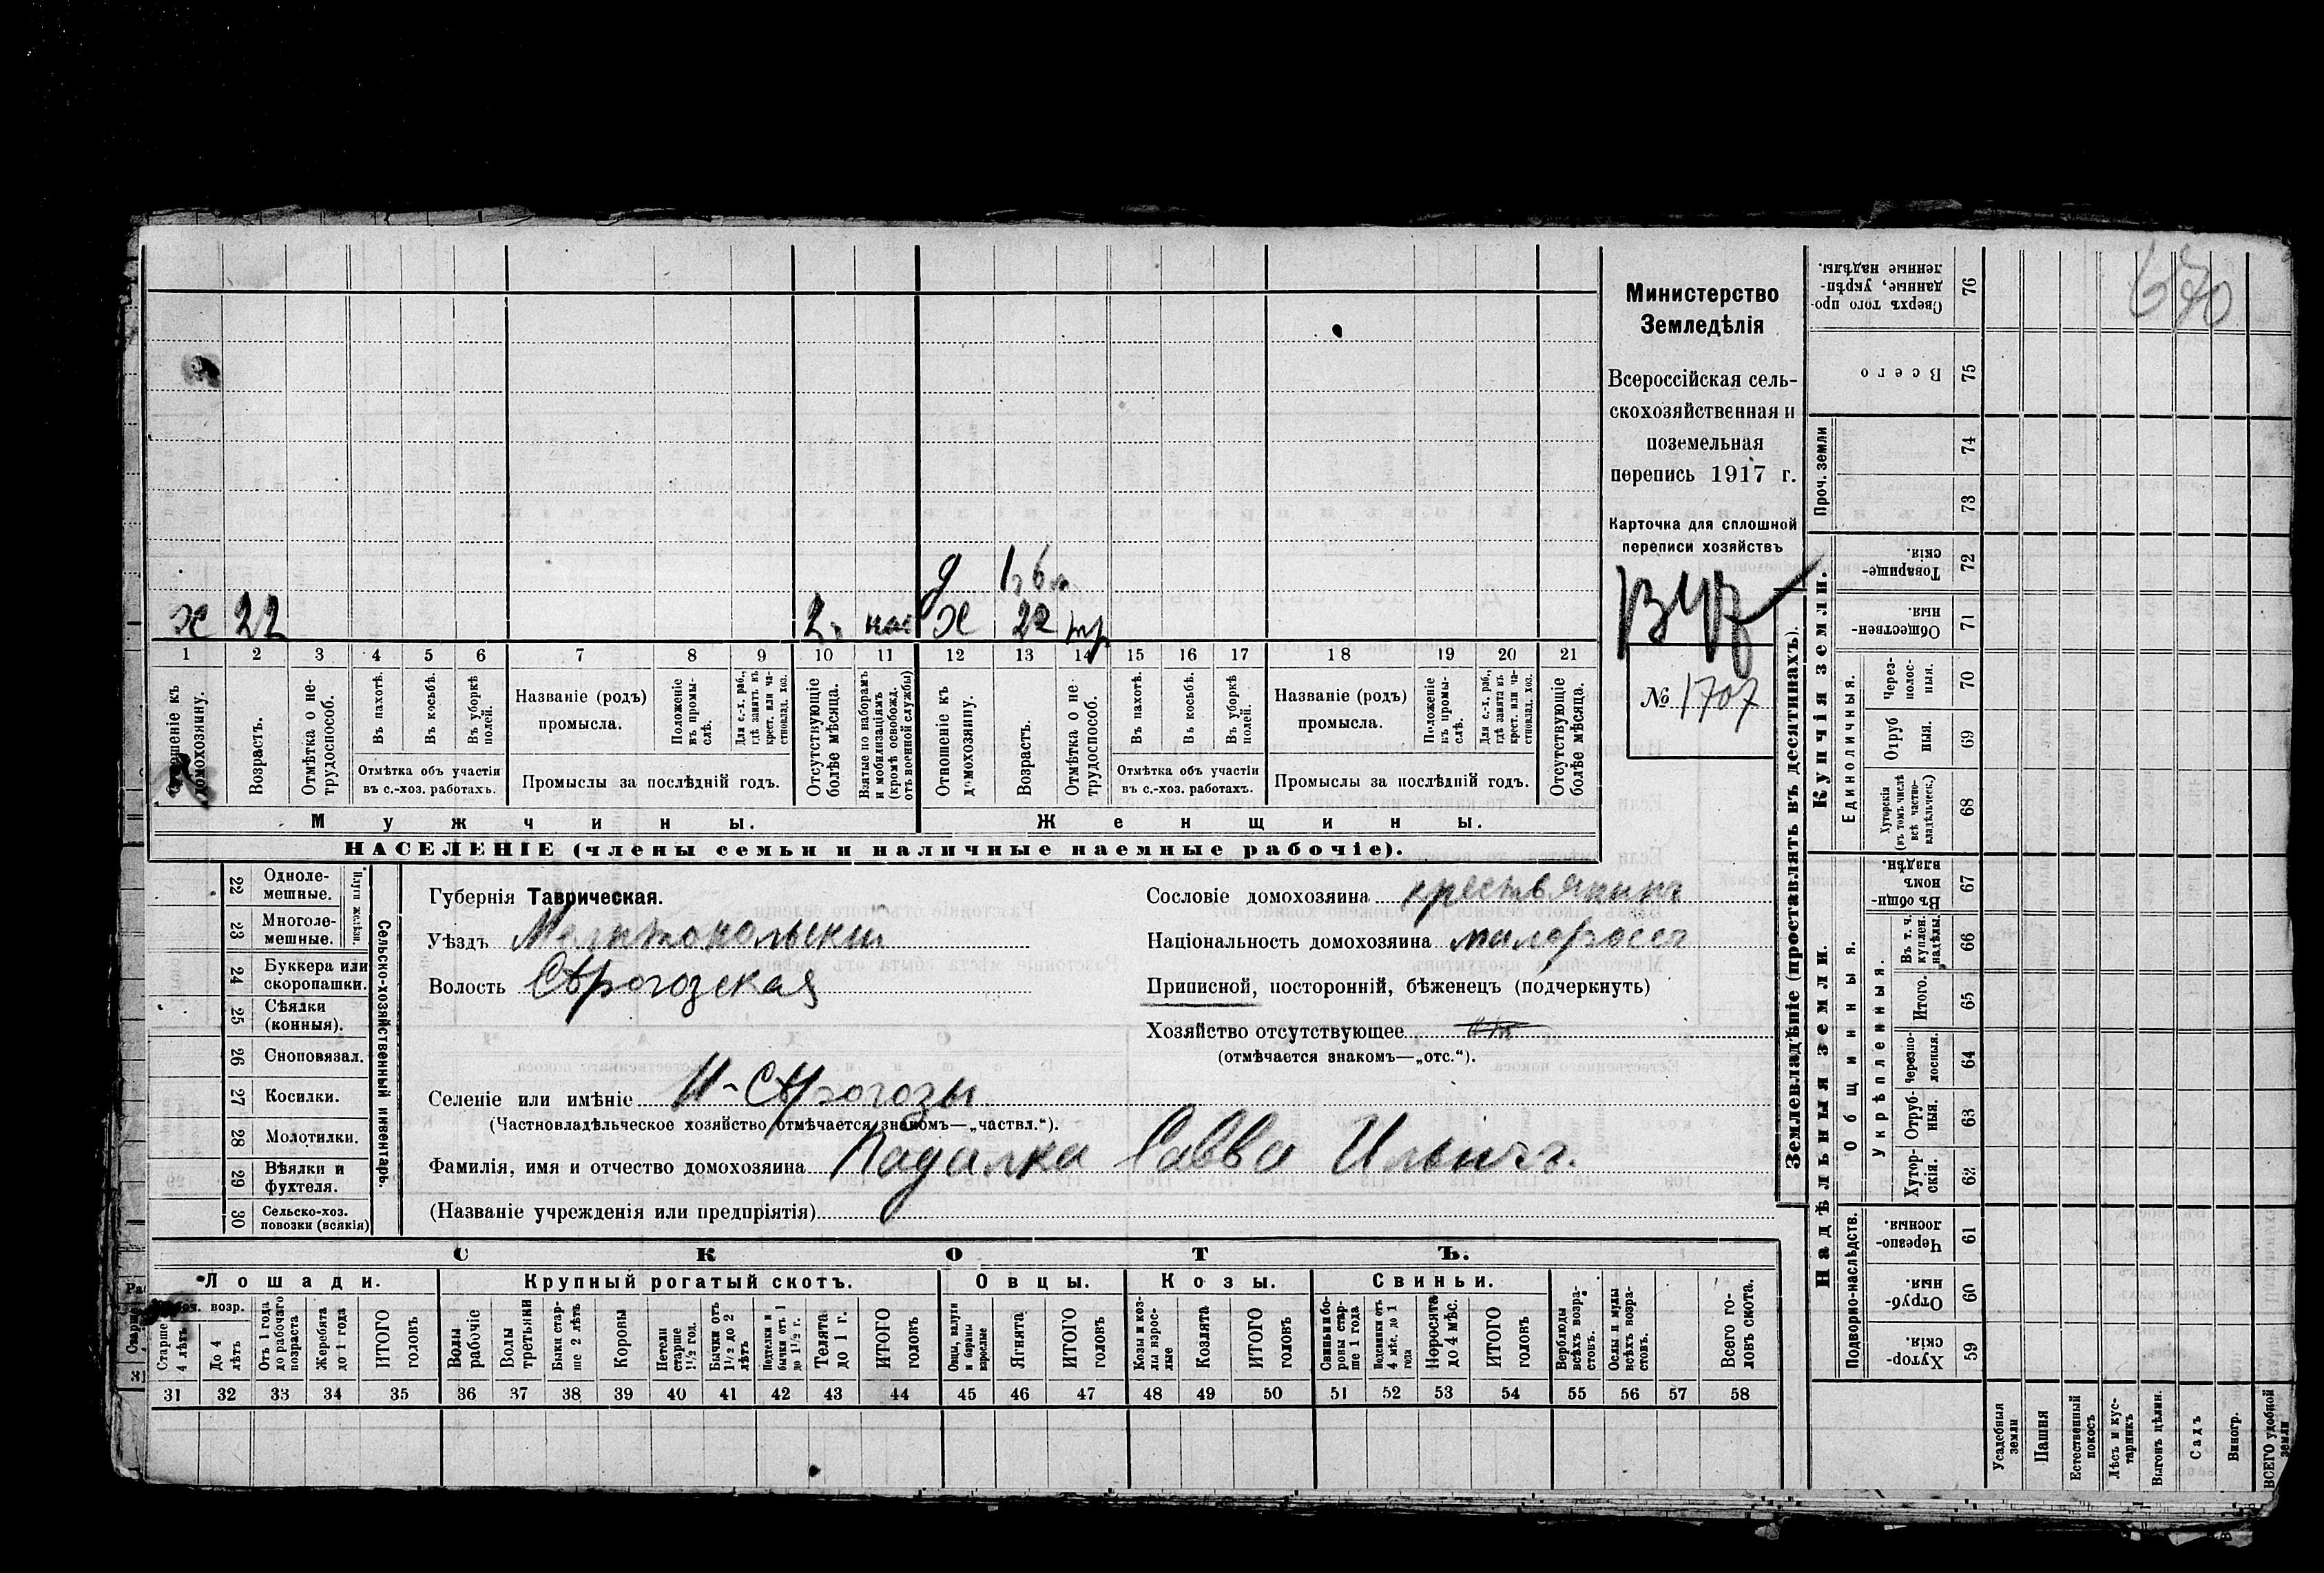 670
Министерство
Земледѣлія
Всероссійская сель-
скохозяйственная и
поземельная
перепись 1917 г.
Карточка для сплошной
переписи хозяйствъ
№ 1707
д 1 г 6 м
х 22 2 г. х 22
1 2 3 4 5 6 7 8 9 10 11 12 13 14 15 16 17 18 19 20 21
Отношеніе къ домохозяину.
Возрастъ.
Отмѣтка о не-трудоспособ.
Въ пахотѣ.
Въ косьбѣ.
Въ уборкѣ полей.
Отмѣтка объ участіи
въ с.-хоз. работахъ.
Названіе (родъ)
промысла.
Положеніе въ промы-слѣ.
Для с.-х. раб., гдѣ занятъ въ крест. или ча-стновлад. хоз.
Промыслы за послѣдній годъ.
Отсутствующіе болѣе мѣсяца.
Взятые по наборамъ и мобилизаціямъ (кромѣ освобожд. отъ военной службы)
Отношеніе къ домохозяину.
Возрастъ.
Отмѣтка о не трудоспособ.
Въ пахотѣ.
Въ косьбѣ.
Въ уборкѣ полей.
Отмѣтка объ участіи
въ с.-хоз. работахъ.
Названіе (родъ)
промысла.
Положеніе въ промы-слѣ.
Для с.-х. раб., гдѣ занята въ крест. или ча-стновлад. хоз.
Промыслы за послѣдній годъ.
Отсутствующіе болѣе мѣсяца.
Мужчины.
Женщины.
НАСЕЛЕНІЕ (члены семьи и наличные наемные рабочіе).
22 Одноле-мешные.
23 Многоле-мешные.
Плуги желѣзн.
24 Буккера или скоропашки.
25 Сѣялки (конныя).
26 Сноповязал.
27 Косилки.
28 Молотилки.
29 Вѣялки и фухтеля.
30 Сельско-хоз. повозки (всякія)
Сельско-хозяйственный инвентарь.
Губернія Таврическая.
Уѣздъ Мелитопольскій
Волость С трогозская
Селеніе или имѣніе Н-С трогозы
(Частновладѣльческое хозяйство отмѣчается знакомъ—„частвл.“).
Фамилія, имя и отчество домохозяина Падалка Савва Ильичъ.
(Названіе учрежденія или предпріятія)
Сословіе домохозяина крестьянинъ
Національность домохозяина малороссъ
Приписной, посторонній, бѣженецъ (подчеркнуть)
Хозяйство отсутствующее
(отмѣчается знакомъ—„отс.“).
СКОТЪ.
Лошади.
Крупный рогатый скотъ.
Овцы.
Козы.
Свиньи.
Старше 4 лѣтъ
До 4 лѣтъ
Отъ 1 года до рабочаго возраста
Жеребята до 1 года
ИТОГО головъ
Волы рабочіе
Волы третьяки
Быки стар-ше 2 лѣтъ
Коровы
Нетели старше 1½ год.
Бычки отъ 1½ до 2 лѣтъ
Подтелки и бычки отъ 1 до 1½ г.
Телята до 1 г.
ИТОГО головъ
Овцы, валухи и бараны взрослые
Ягнята
ИТОГО головъ
Козы и коз-лы взрос-лые
Козлята
ИТОГО головъ
Свиньи и бо-ровы стар-ше 1 года
Подсвинки отъ 4 мѣс. до 1 года
Поросята до 4 мѣс.
ИТОГО головъ
Верблюды всѣхъ возра-стовъ.
Ослы и мулы всѣхъ возра-стовъ.
Всего го-ловъ скота.
31 32 33 34 35 36 37 38 39 40 41 42 43 44 45 46 47 48 49 50 51 52 53 54 55 56 57 58
Землевладѣніе (проставлять въ десятинахъ).
Купчія земли.
Надѣльныя земли.
Сверхъ того про-данные, укрѣп-ленные надѣлы. 76
Всего 75
Проч. земли
74
73
Товарище-скія. 72
Обществен-ныя. 71
Единоличныя.
Через-полос-ныя. 70
Отруб ныя. 69
Хуторскія (въ томъ числѣ всѣ частно-владѣльческ.) 68
Въ общи-номъ владѣн. 67
Общинныя.
Укрѣпленныя.
Въ т. ч. куплен. надѣлы. 66
Итого. 65
Черезпо-лосныя. 64
Отруб-ныя. 63
Хутор-скія. 62
Подворно-наслѣдств.
Черезпо-лосныя. 61
Отруб-ныя. 60
Хутор-скія. 59
Усадебныя земли
Пашня
Естественный покосъ
Лѣсъ и кус-тарникъ
Выгонъ цѣлин.
Садъ
Виногр.
ВСЕГО удобной земли